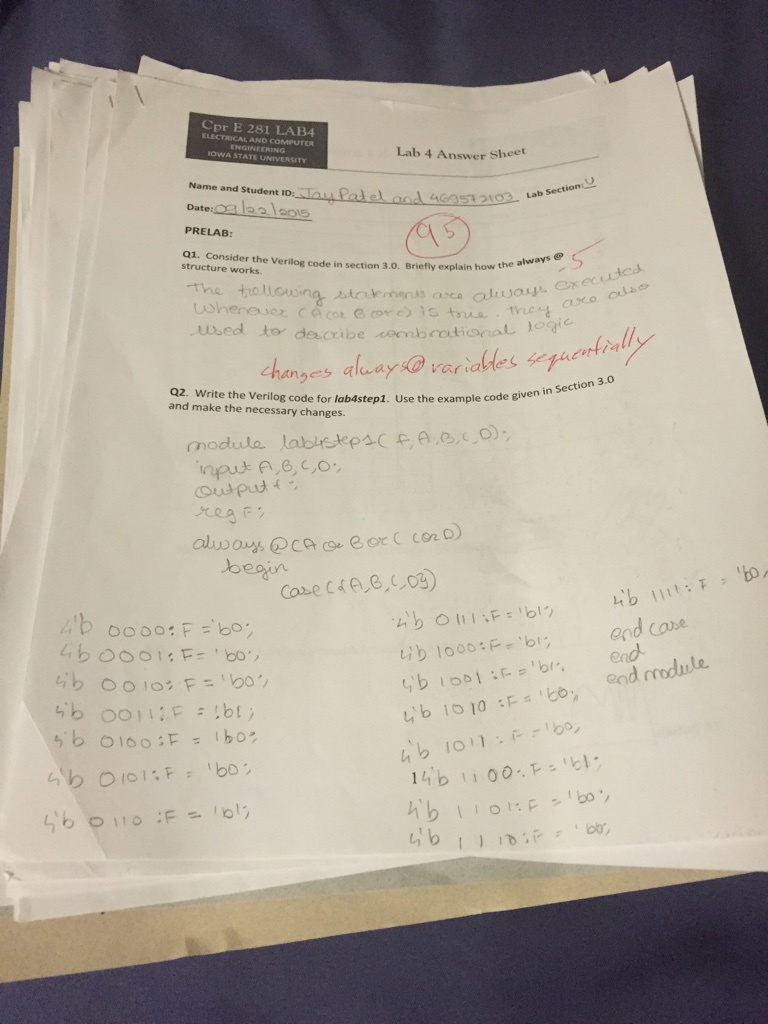 Cpr E 281 LAB4
ELECTRICAL AND COMPUTER
ENGINEERING
IOWA STATE UNIVERSITY
Lab 4 Answer Sheet
Name and Student ID: Jay Patel and 469572103 Lab Section: U
Date: 09/22/2015
95
PRELAB:
Q1. Consider the Verilog code in section 3.0. Briefly explain how the always @
structure works.
-5
The following statements are always executed
whenever (A or B or C) is true. They are also
used to describe combinational logic
changes always@ variables sequentially
Q2. Write the Verilog code for lab4step1. Use the example code given in Section 3.0
and make the necessary changes.
module lab4step1(f,A,B,C,D);
input A,B,C,D;
output f;
reg F;
always @(A or B or C or D)
begin
case({A,B,C,D})
4'b 0000: F ='b0;
4'b 0001: F= 'b0;
4'b 0010: F ='b0;
4'b 0011: F = 'b1;
4'b 0100: F = 'b0;
4'b 0101: F = 'b0;
4'b 0110 :F = 'b1;
4'b 0111 :F='b1;
4'b 1000:F='b1;
4'b 1001 :F='b1;
4'b 1010 :F='b0;
4'b 1011 : F='b0;
14'b 1100: F='b1;
4'b 1101: F='b0;
4'b 1110: F = 'b0;
4'b 1111: F = 'b0,
end case
end
end module